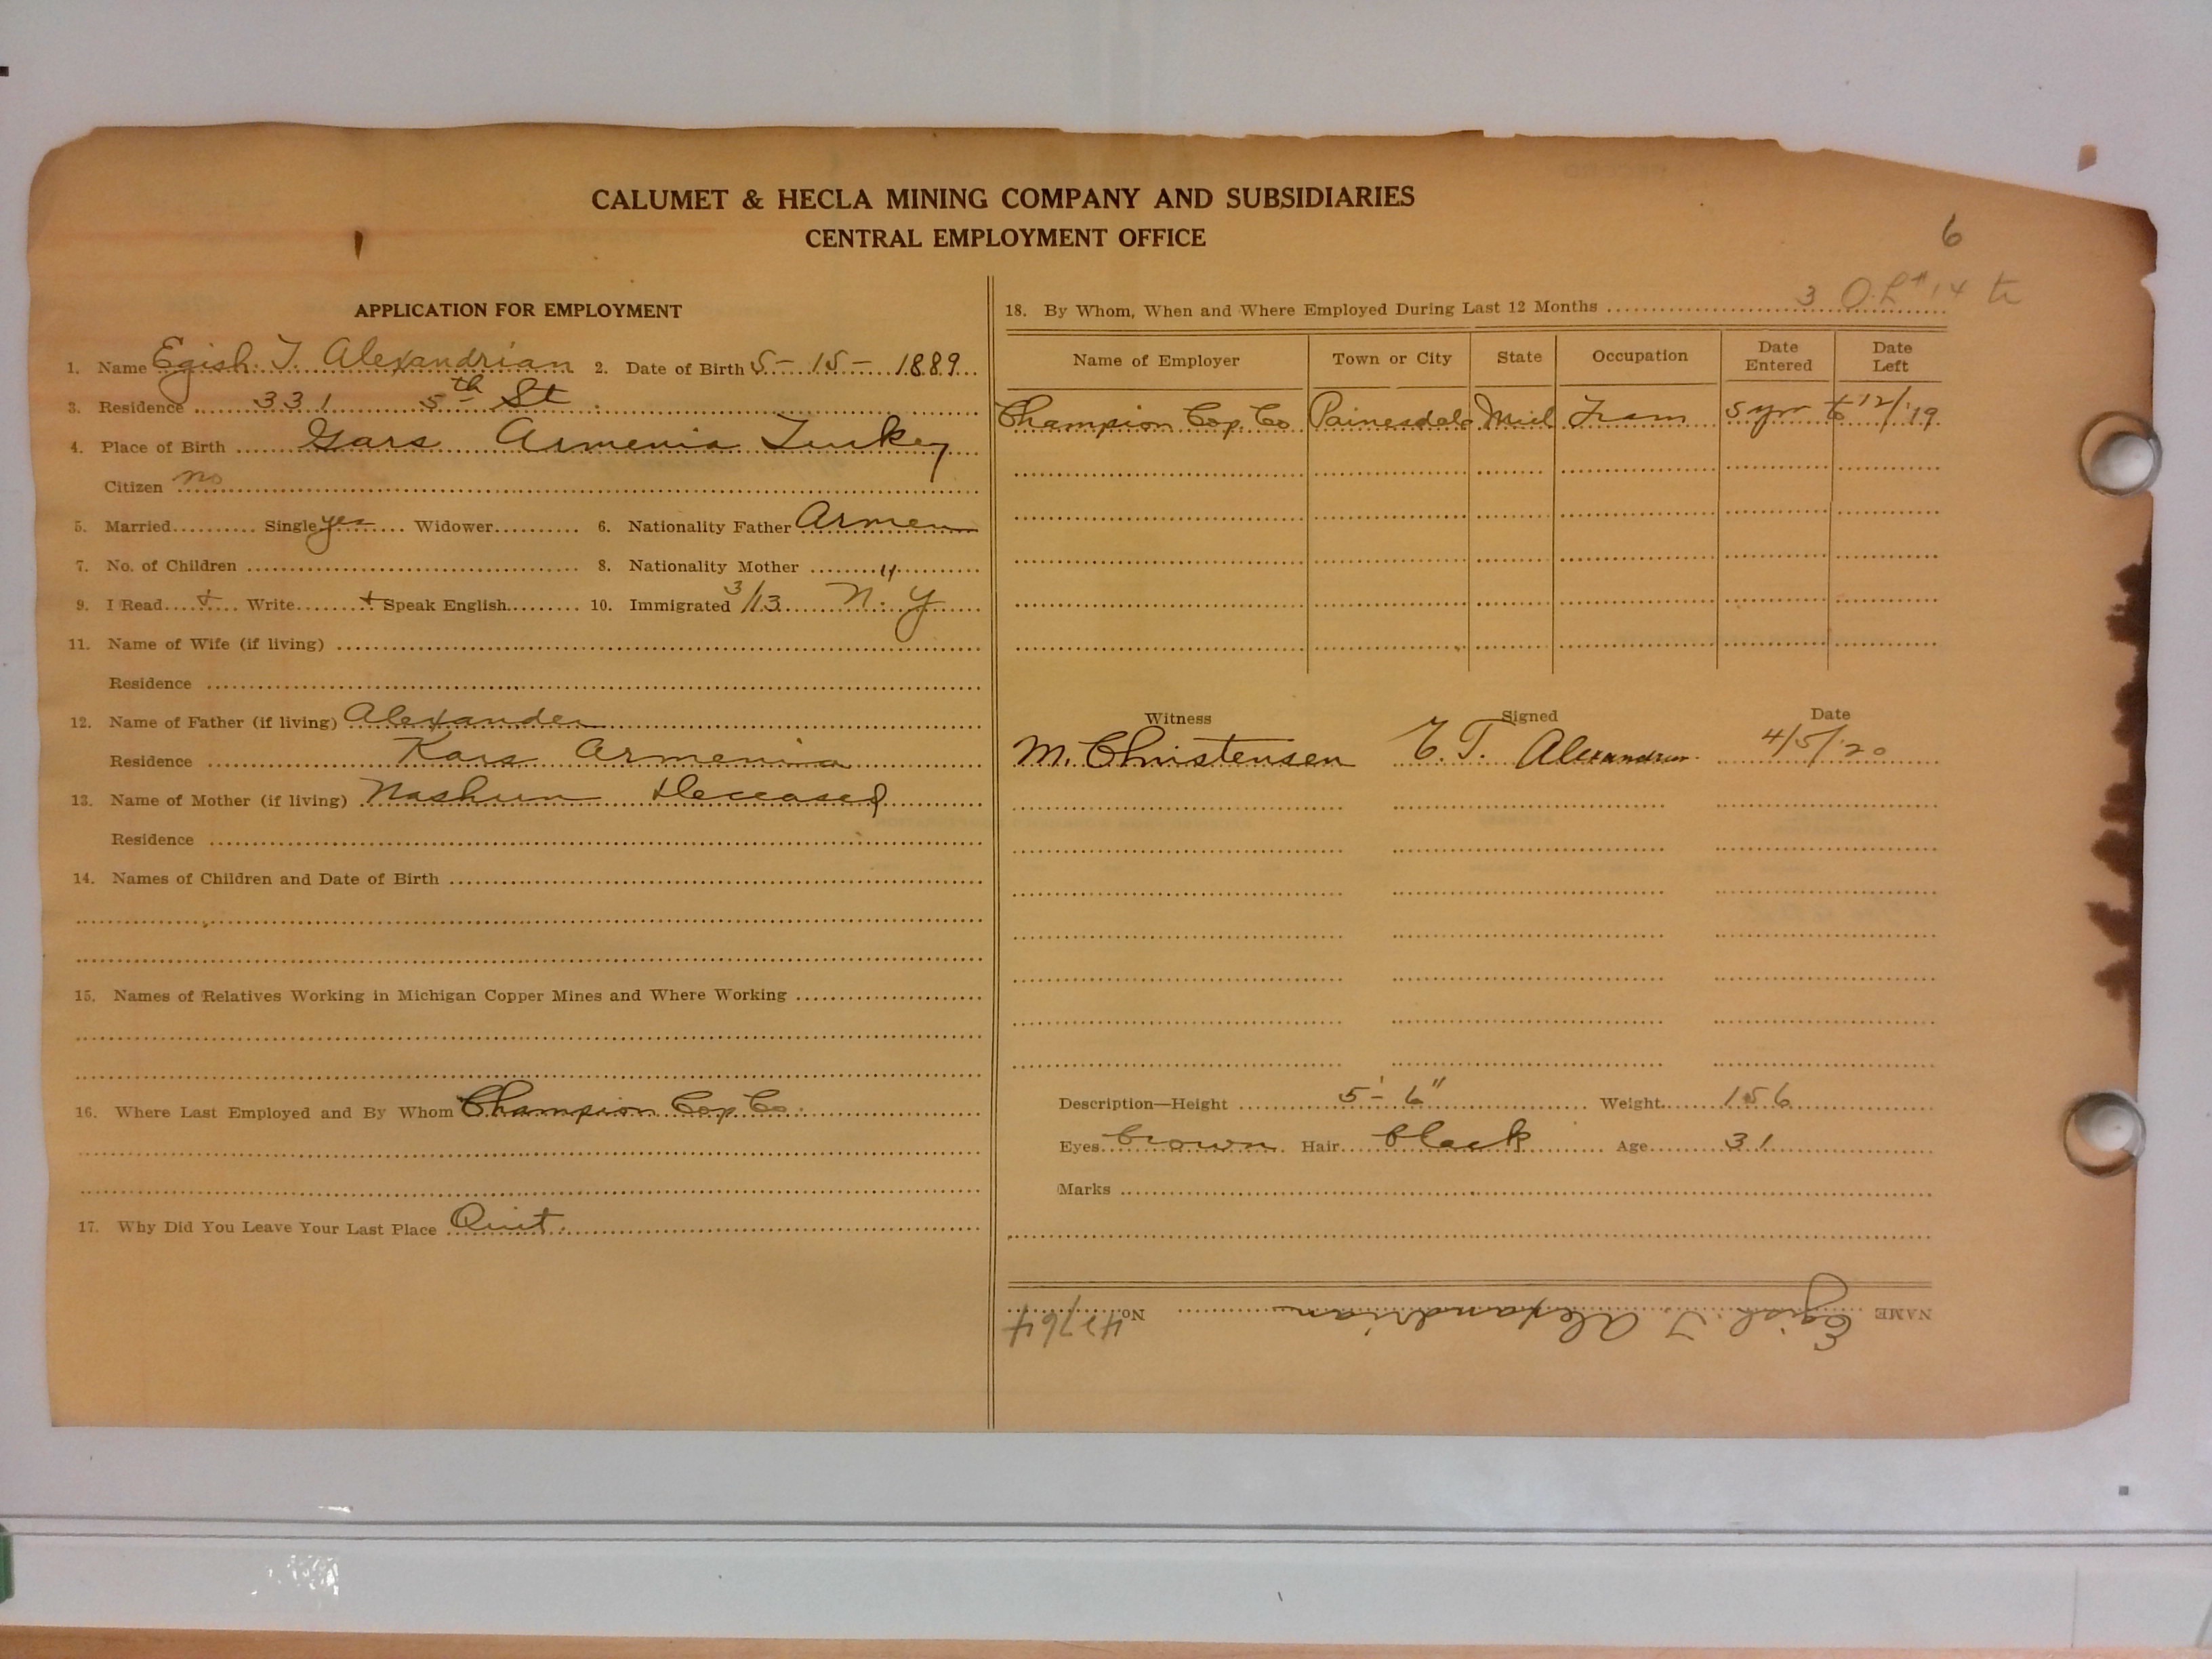 CALUMET & HECLA MINING COMPANY AND SUBSIDIARIES
CENTRAL EMPLOYMENT OFFICE
6
APPLICATION FOR EMPLOYMENT
1. Name Egish T. Alexandrian 2. Date of Birth 5-15-1889
3. Residence 331 5th St
4. Place of Birth Gars Armenia Turkey
Citizen no
5. Married Single yes Widower 6. Nationality Father Armen
7. No. of Children 8. Nationality Mother "
9. I Read + Write + Speak English 10. Immigrated 3/13 N.Y
11. Name of Wife (if living)
Residence
12. Name of Father (if living) Alexander
Residence Kars Armenia
13. Name of Mother (if living) Deceased
Residence
14. Names of Children and Date of Birth
15. Names of Relatives Working in Michigan Copper Mines and Where Working
16. Where Last Employed and By Whom Champion Cop. Co.
17. Why Did You Leave Your Last Place Quit
3 O.L #14 tr
18. By Whom, When and Where Employed During Last 12 Months
Name of Employer Town or City State Occupation Date Entered Date Left
Champion Cop. Co Painesdale Mich Tram 5 yrs to 12/'19
Witness Signed Date
M. Christensen E. T. Alexandrian 4/5/'20
Description—Height 5'-6" Weight 156
Eyes brown Hair black Age 31
Marks
NAME Egish T. Alexandrian No. 42764